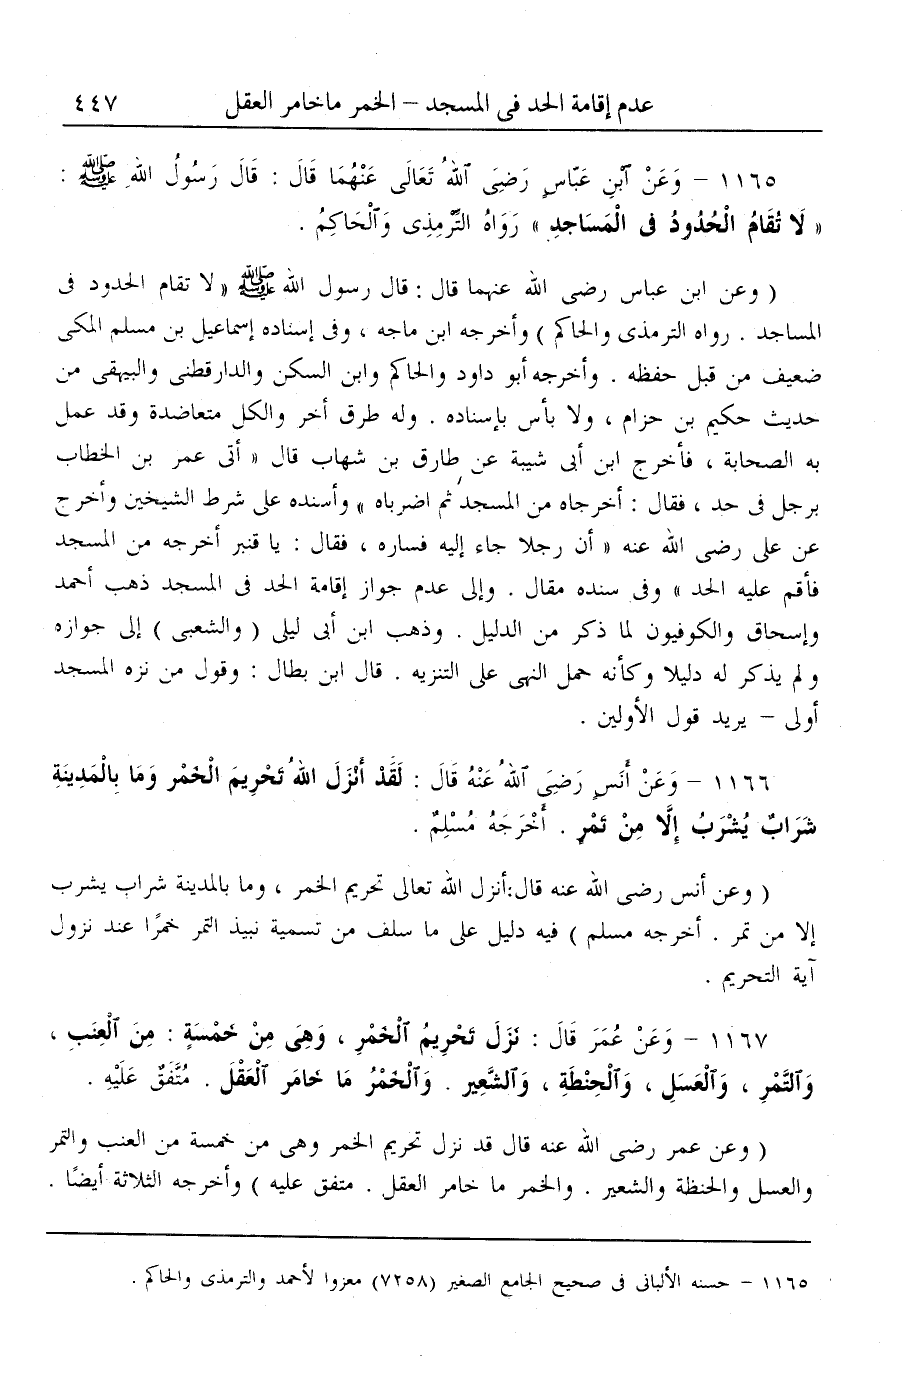 عدم إقامة الحد فى المسجد – الخمر ماخامر العقل ٤٤٧
١١٦٥ – وَعَنْ ٱبْنِ عَبّاسٍ رَضِىَ ٱللهُ تَعَالَى عَنْهُمَا قَالَ : قَالَ رَسُولُ اللهِ ﷺ :
« لَا تُقَامُ الْحُدُودُ فى الْمَسَاجدِ » رَوَاهُ التِّرمِذِى وَٱلْحَاكِمُ .
( وعن ابن عباس رضى الله عنهما قال : قال رسول الله ﷺ « لا تقام الحدود فى
المساجد . رواه الترمذى والحاكم ) وأخرجه ابن ماجه ، وفى إسناده إسماعيل بن مسلم المكى
ضعيف من قبل حفظه . وأخرجه أبو داود والحاكم وابن السكن والدارقطنى والبيهقى من
حديث حكيم بن حزام ، ولا بأس بإسناده . وله طرق أخر والكل متعاضدة وقد عمل
به الصحابة ، فأخرج ابن أبى شيبة عن طارق بن شهاب قال « أتى عمر بن الخطاب
برجل فى حد ، فقال : أخرجاه من المسجد ثم اضرباه » وأسنده على شرط الشيخين وأخرج
عن على رضى الله عنه « أن رجلا جاء إليه فساره ، فقال : يا قنبر أخرجه من المسجد
فأقم عليه الحد » وفى سنده مقال . وإلى عدم جواز إقامة الحد فى المسجد ذهب أحمد
وإسحاق والكوفيون لما ذكر من الدليل . وذهب ابن أبى ليلى ( والشعبى ) إلى جوازه
ولم يذكر له دليلا وكأنه حمل النهى على التنزيه . قال ابن بطال : وقول من نزه المسجد
أولى – يريد قول الأولين .
١١٦٦ – وَعَنْ أَنَسٍ رَضِىَ ٱللهُ عَنْهُ قَالَ : لَقَدْ أَنْزَلَ اللهُ تَحْرِيمَ الْخَمْرِ وَمَا بِالْمَدِينَةِ
شَرَابٌ يُشْرَبُ إِلَّا مِنْ تَمْرٍ . أَخْرَجَهُ مُسْلِمٌ .
( وعن أنس رضى الله عنه قال:أنزل الله تعالى تحريم الخمر ، وما بالمدينة شراب يشرب
إلا من تمر . أخرجه مسلم ) فيه دليل على ما سلف من تسمية نبيذ التمر خمرًا عند نزول
آية التحريم .
١١٦٧ – وَعَنْ عُمَرَ قَالَ : نَزَلَ تَحْرِيمُ ٱلْخَمْرِ ، وَهِىَ مِنْ خَمْسَةٍ : مِنَ ٱلْعِنَبِ ،
وَٱلتَّمْرِ ، وَٱلْعَسَلِ ، وَٱلْحِنْطَةِ ، وَٱلشَّعِيرِ . وَٱلْخَمْرُ مَا خَامَر ٱلْعَقْلَ . مُتَّفَقٌ عَلَيْهِ .
( وعن عمر رضى الله عنه قال قد نزل تحريم الخمر وهى من خمسة من العنب والتمر
والعسل والحنظة والشعير . والخمر ما خامر العقل . متفق عليه ) وأخرجه الثلاثة أيضًا .
١١٦٥ – حسنه الألبانى فى صحيح الجامع الصغير (٧٢٥٨) معزوا لأحمد والترمذى والحاكم .